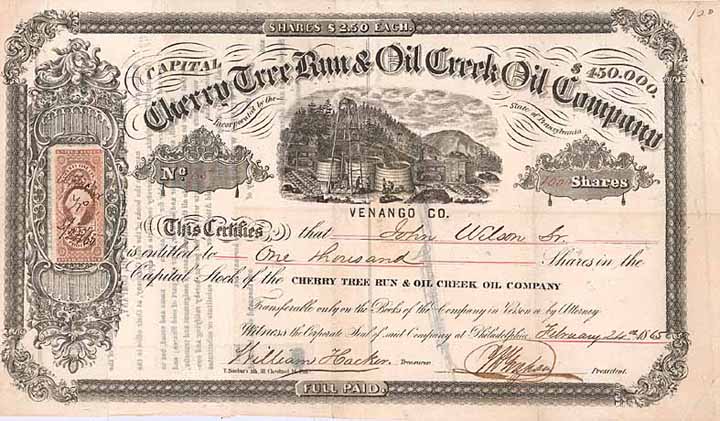 SHARES $2.50 EACH.
CAPITAL $450.000.
Cherry Tree Run & Oil Creek Oil Company
Incorporated by the State of Pennsylvania
No
1000 Shares
VENANGO CO.
This Certifies that John Wilson Sr.
is entitled to One thousand Shares in the
Capital Stock of the CHERRY TREE RUN & OIL CREEK OIL COMPANY
Transferable only on the Books of the Company in Person or by Attorney
Witness the Corporate Seal of said Company at Philadelphia February 24th 1865
William Hacker Treasurer President.
FULL PAID.